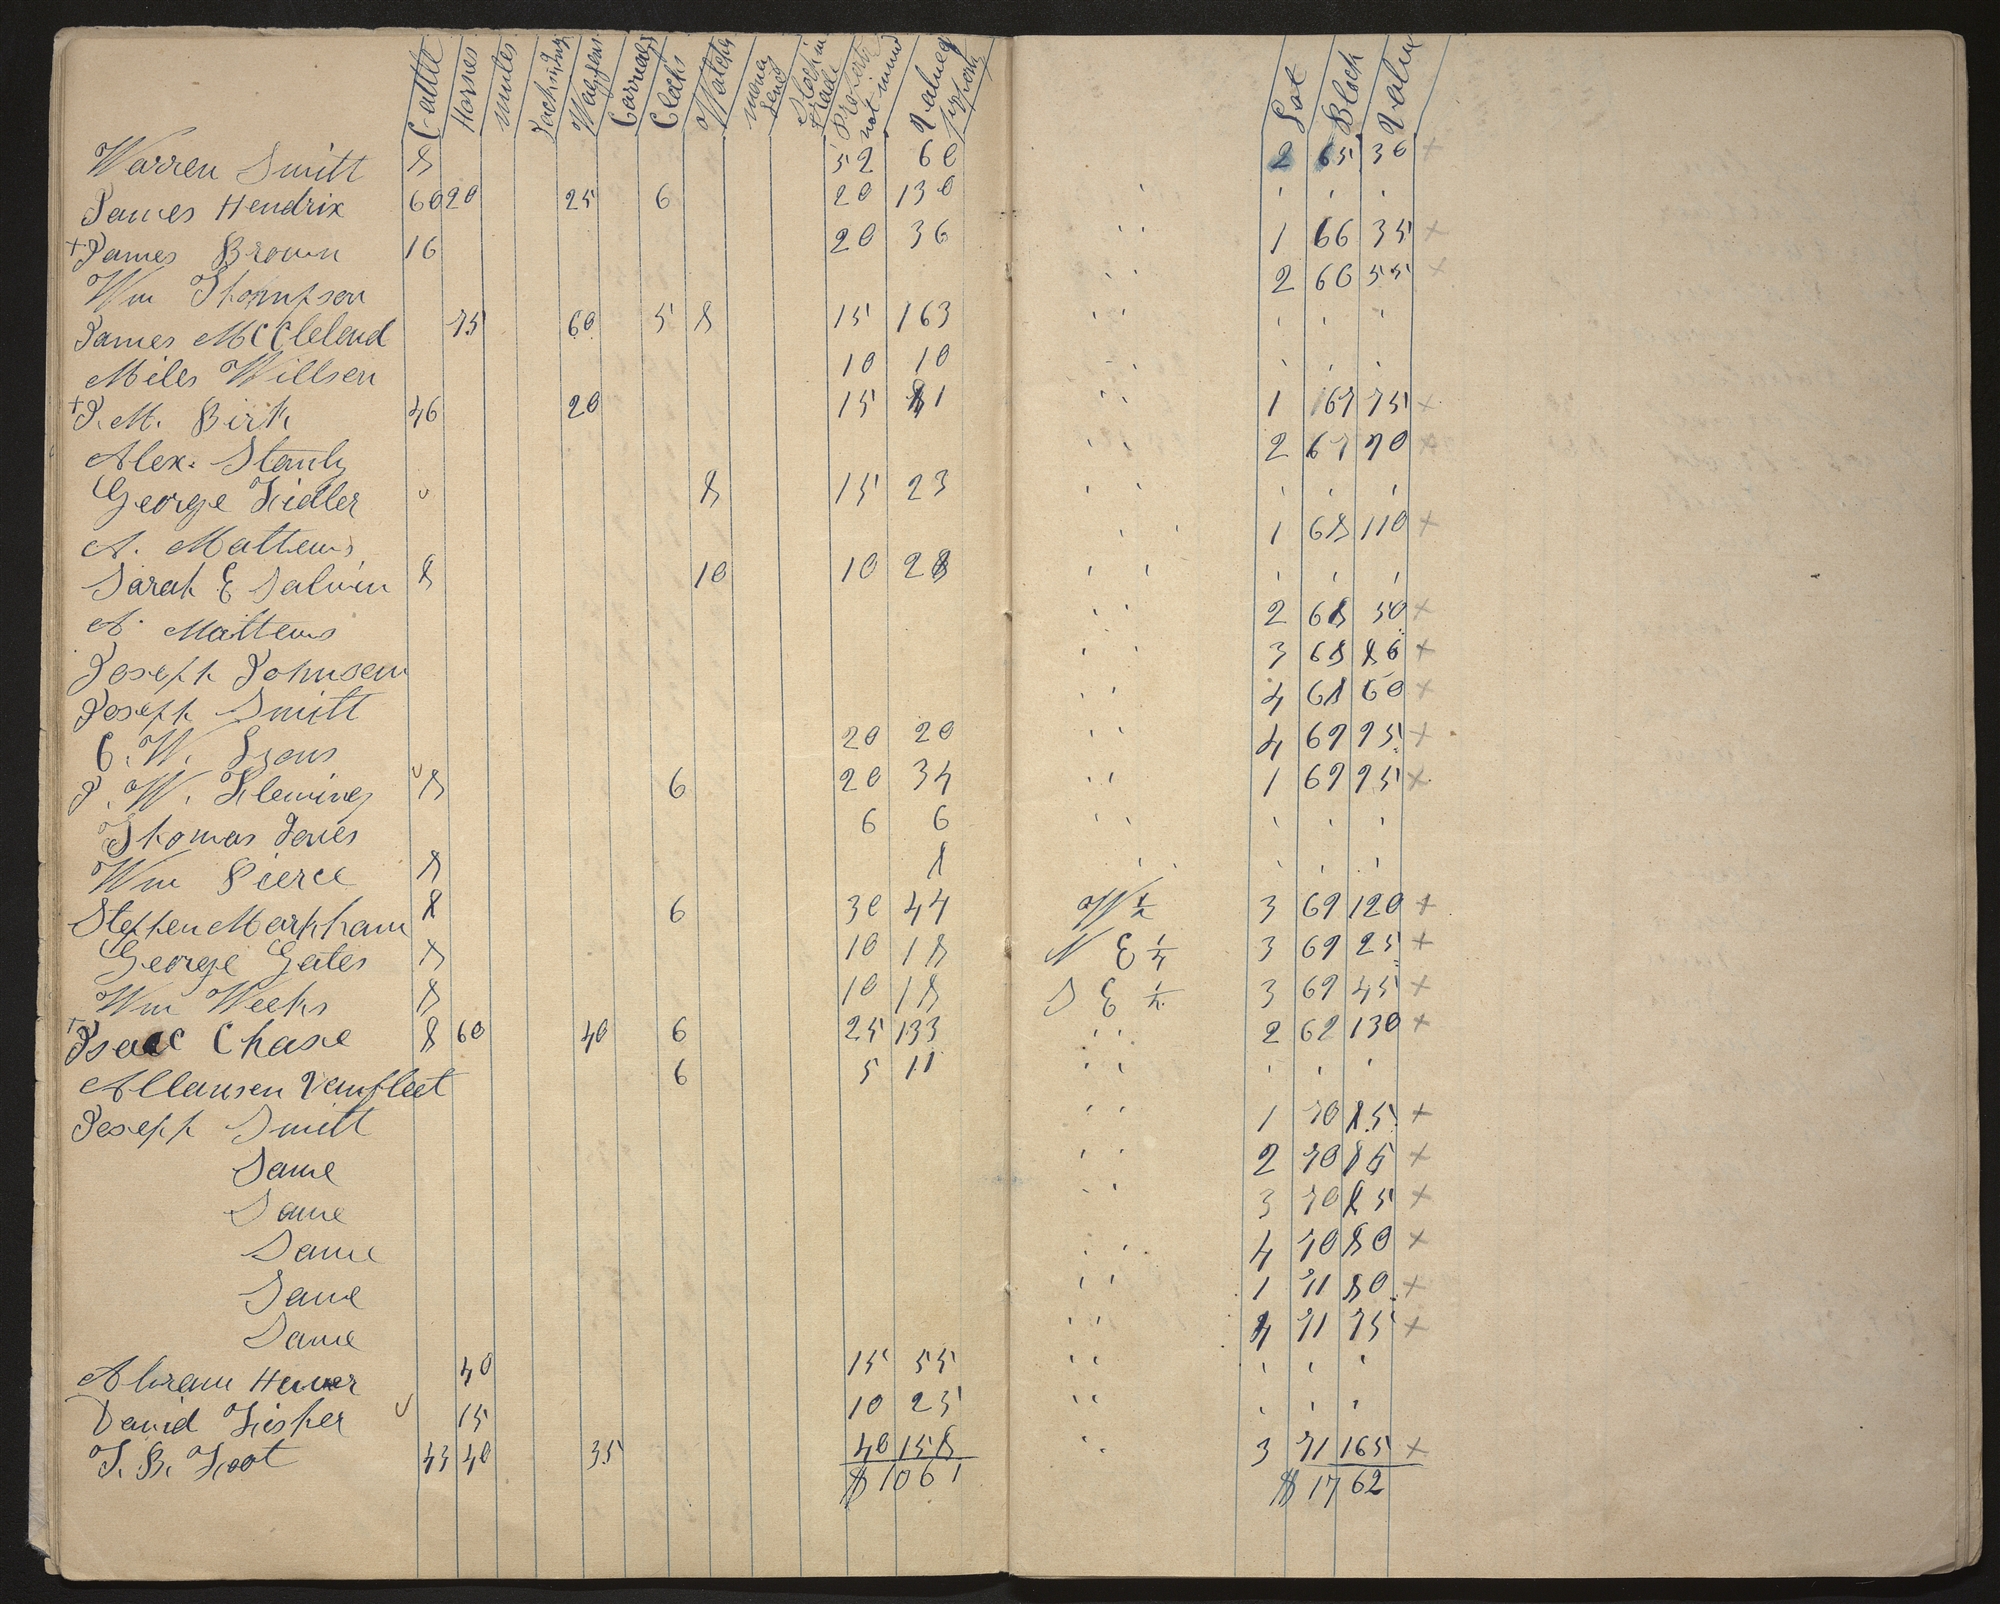 Cattle Horses Mules Jack Waggons Carriages Clocks Watches money Stock in trade Property not Value property Lot Block Value
Warren Smitt 8 52 60 2 65 36 +
James Hendrix 60 20 25 6 20 130 ' ' '
+ James Brown 16 20 36 " 1 66 35 +
Wm Thompson " 2 66 55 +
James McClelend 75 60 5 8 15 163 " ' ' '
Miles Willsen 10 10 ' ' '
+ J. M. Birk 46 20 15 81 " 1 67 75 +
Alex. Stanly " 2 67 70 +
George Fidler 8 15 23 " ' ' '
A. Mattews " 1 68 110 +
Sarah E Salwin 8 10 10 28 " ' ' '
A. Mattews " 2 68 50 +
Joseph Johnsen " 3 68 86 +
Joseph Smitt " 4 68 60 +
C. W. Lyons 20 20 " 4 69 95 +
J. W. Fleming 8 6 20 34 " 1 69 95 +
Thomas Jones 6 6 " ' ' '
Wm Pierce 8 8 " ' ' '
Stephen Markham 8 6 30 44 W ½ 3 69 120 +
George Gates 8 10 18 N E ¼ 3 69 25 +
Wm Weeks 8 10 18 S E ¼ 3 69 45 +
+ Isaac Chase 8 60 40 6 25 133 " 2 62 130 +
Allausen Vanfleet 6 5 11 " ' ' '
Joseph Smitt " 1 70 85 +
Same " 2 70 85 +
Same " 3 70 85 +
Same " 4 70 80 +
Same " 1 71 80 +
Same " 4 71 75 +
Abram 40 15 55 " ' ' '
David Fisher 15 10 25 " ' ' '
T. B. Foot 43 40 35 40 158 " 3 71 165 +
$ 1061 $ 1762